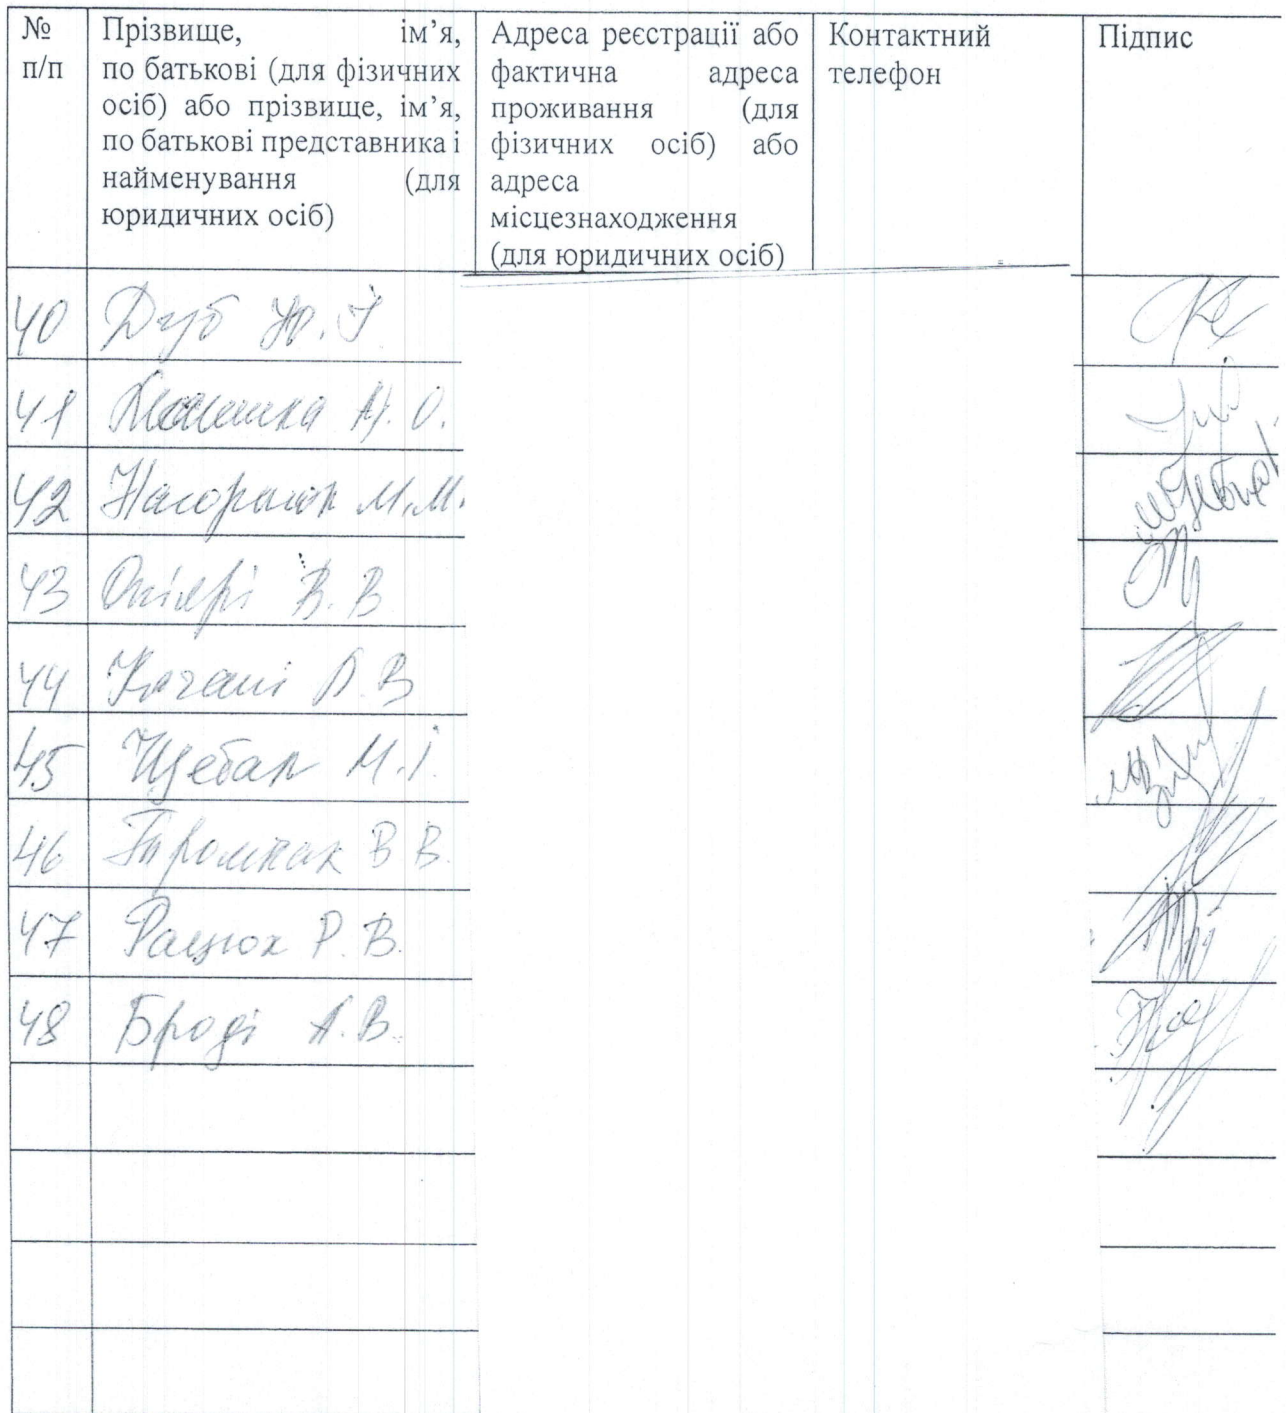 № п/п
Прізвище, ім’я,
по батькові (для фізичних
осіб) або прізвище, ім’я,
по батькові представника і
найменування (для
юридичних осіб)
Адреса реєстрації або
фактична адреса
проживання (для
фізичних осіб) або
адреса
місцезнаходження
(для юридичних осіб)
Контактний
телефон
Підпис
40 Дуб Ю. І.
41 А. О.
42 М.М.
43 В. В
44 В
45 Щебак М.І.
46 В В.
47 Рацюк Р. В.
48 Броді А. В.